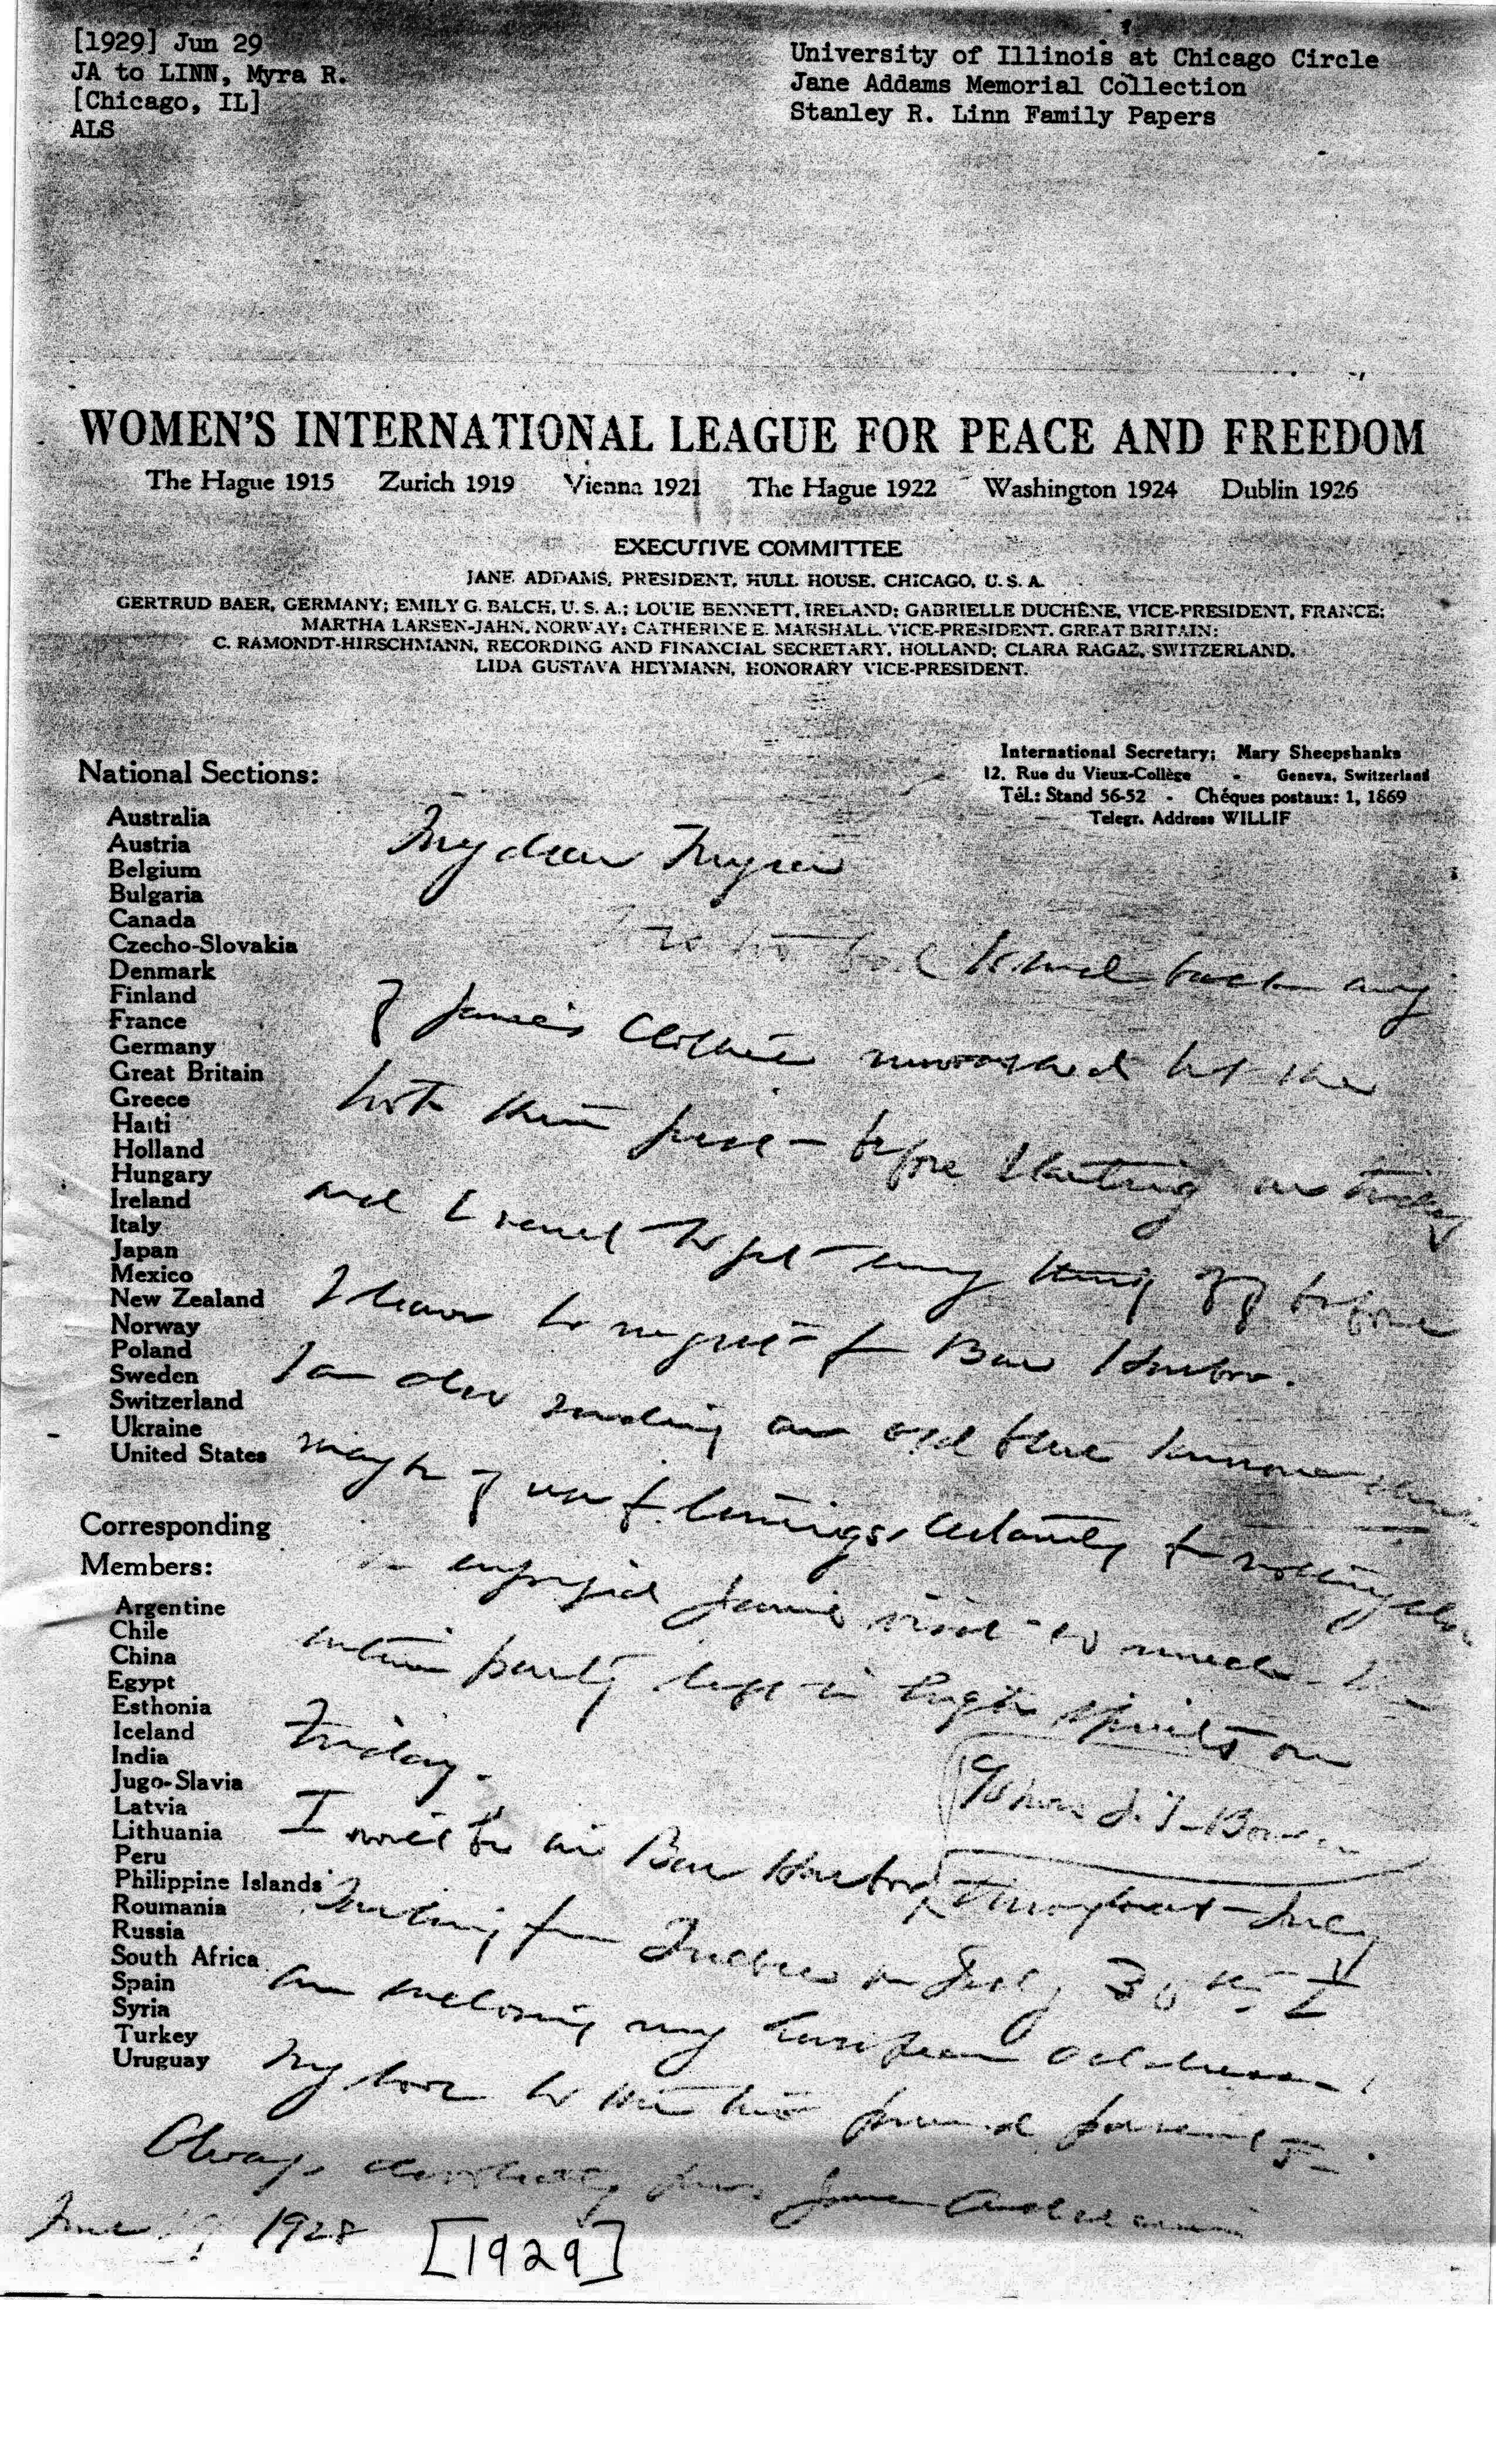 [1929] Jun 29
JA to LINN, Myra R.
[Chicago, IL]
ALS
University of Illinois at Chicago Circle
Jane Addams Memorial Collection
Stanley R. Linn Family Papers
WOMEN'S INTERNATIONAL LEAGUE FOR PEACE AND FREEDOM
The Hague 1915 Zurich 1919 Vienna 1921 The Hague 1922 Washington 1924 Dublin 1926
EXECUTIVE COMMITTEE
JANE ADDAMS, PRESIDENT, HULL HOUSE, CHICAGO, U. S. A.
GERTRUD BAER, GERMANY; EMILY G. BALCH, U. S. A.; LOUIE BENNETT, IRELAND; GABRIELLE DUCHÊNE, VICE-PRESIDENT, FRANCE;
MARTHA LARSEN-JAHN, NORWAY; CATHERINE E. MARSHALL, VICE-PRESIDENT, GREAT BRITAIN;
C. RAMONDT-HIRSCHMANN, RECORDING AND FINANCIAL SECRETARY, HOLLAND; CLARA RAGAZ, SWITZERLAND,
LIDA GUSTAVA HEYMANN, HONORARY VICE-PRESIDENT.
International Secretary; Mary Sheepshanks
12, Rue du Vieux-Collège - Geneva, Switzerland
Tél.: Stand 56-52 - Chéques postaux: 1, 1869
Telegr. Address WILLIF
National Sections:
Australia
Austria
Belgium
Bulgaria
Canada
Czecho-Slovakia
Denmark
Finland
France
Germany
Great Britain
Greece
Haiti
Holland
Hungary
Ireland
Italy
Japan
Mexico
New Zealand
Norway
Poland
Sweden
Switzerland
Ukraine
United States
Corresponding
Members:
Argentine
Chile
China
Egypt
Esthonia
Iceland
India
Jugo-Slavia
Latvia
Lithuania
Peru
Philippine Islands
Roumania
Russia
South Africa
Spain
Syria
Turkey
Uruguay
My dear Myra
to send back any
of Jane's clothes unwashed but she
both then just before starting
and I want to get my things off before
I leave to night for Bar Harbor.
I am also sending an old blue
may be of use for linings, certainly for nothing else
enjoyed Jane's visit so much
entire party left in high spirits on
Friday.
I will be in Bar Harbor, throughout July
℅ Mrs J. T. Bowen
Sailing from Quebec on July 30th I
am enclosing my European address.
My love to the two proud parents.
Always devotedly yours Jane Addams
June 29, 1928
[1929]